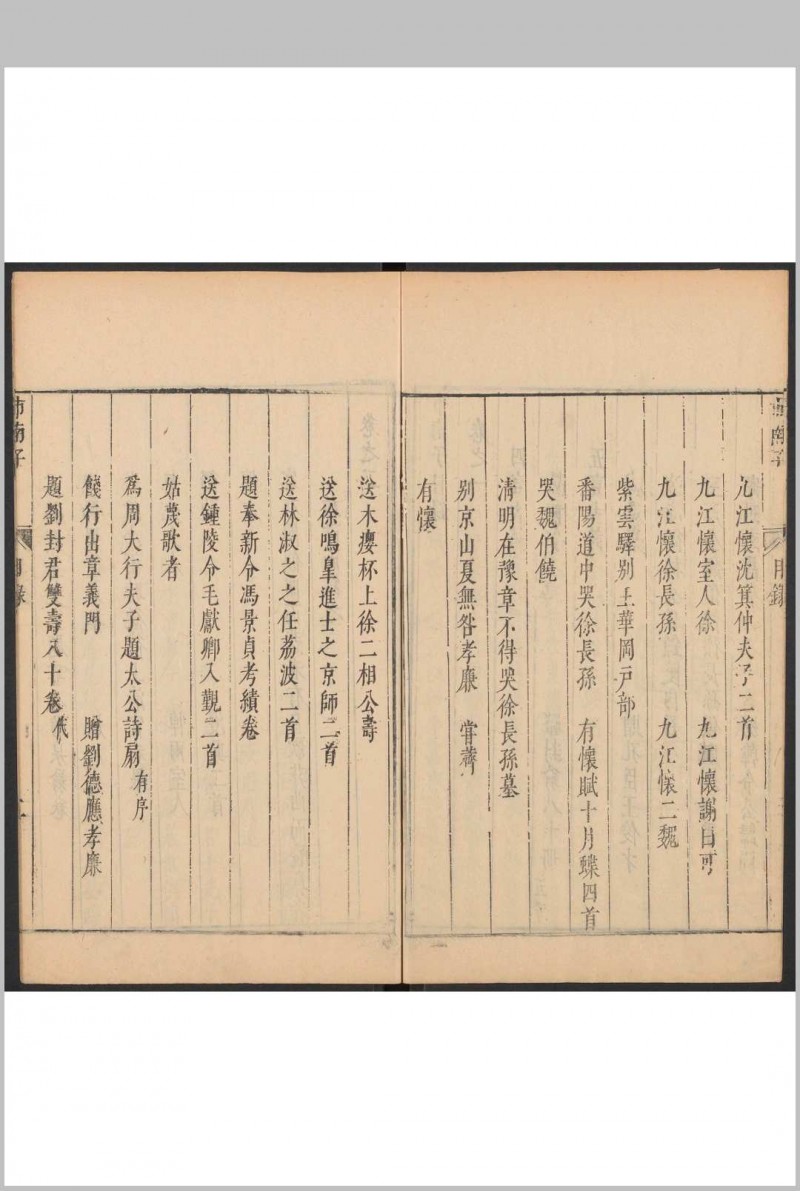 市南子
目錄
九江懷沈箕仲夫子二首
九江懷室人徐 九江懷謝曰可
九江懷徐長孫 九江懷二魏
紫雲驛別王華岡戶部
番陽道中哭徐長孫 有懷賦十月蝶四首
哭魏伯饒
清明在豫章不得哭徐長孫墓
別京山夏無咎孝廉 嘗薺
有懷
送木癭杯上徐二相公壽
送徐鳴皐進士之京師二首
送林淑之之任荔波二首
題奉新令馮景貞考績卷
送鍾陵令毛獻卿入覲二首
姑蔑歌者
爲周大行夫子題太公詩扇 有序
餞行出章義門 贈劉德應孝廉
題劉封君雙壽八十卷 代
市南子
目錄